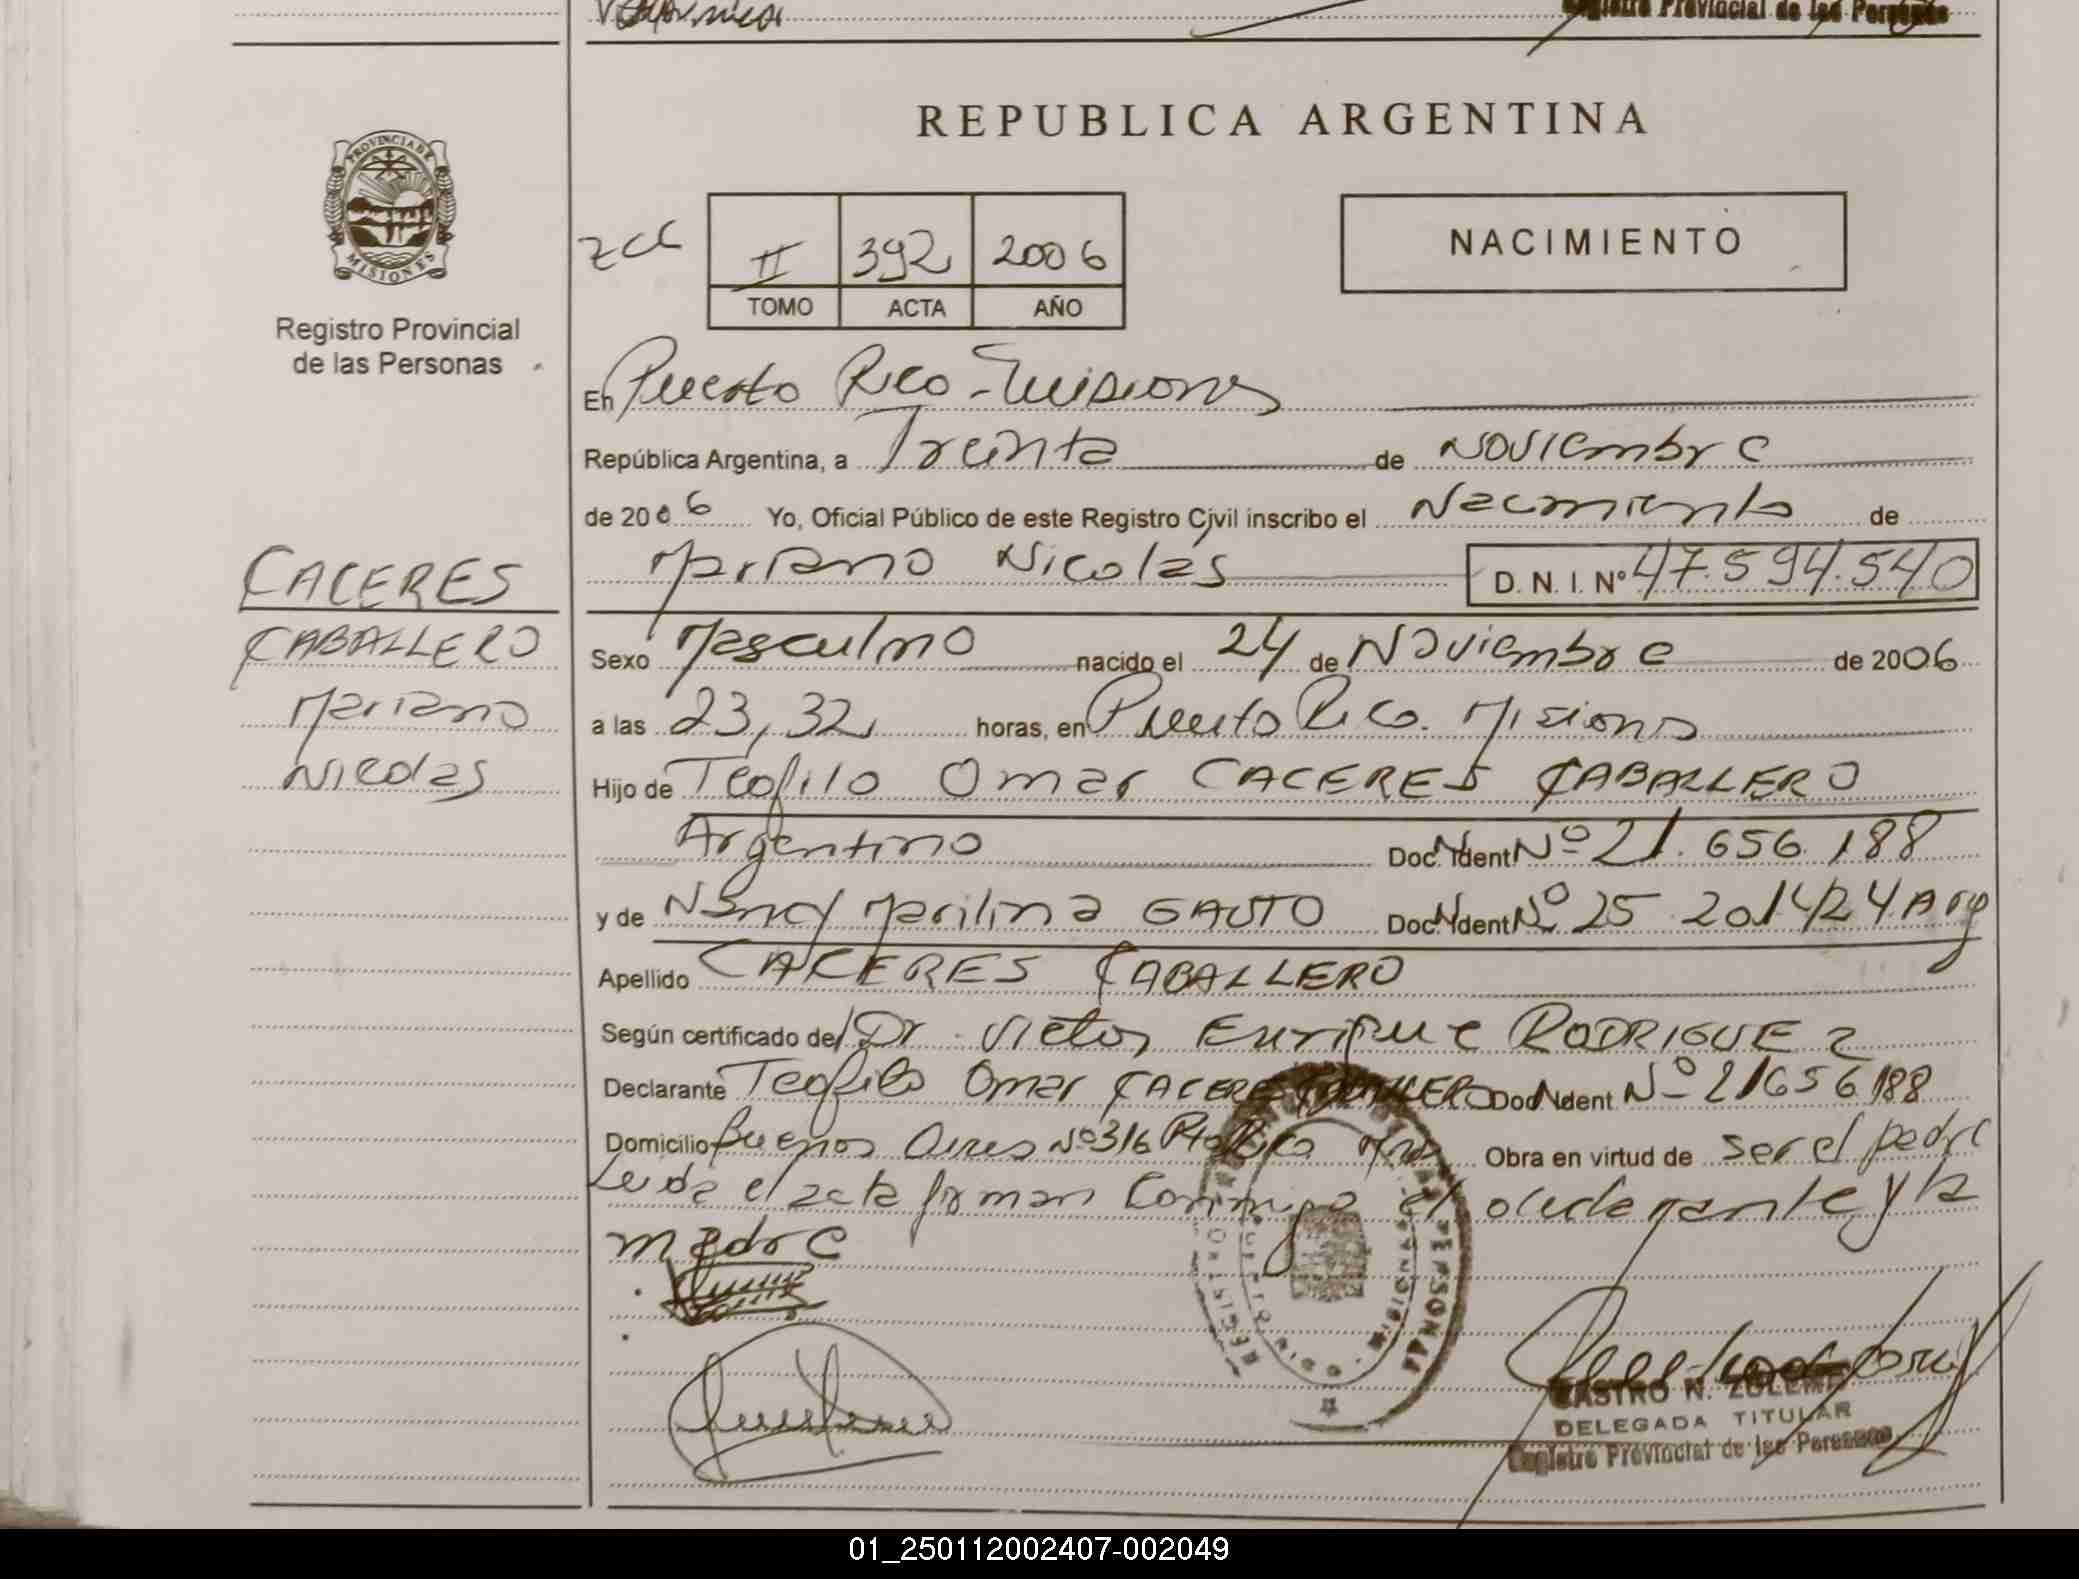 Registro Provincial de las Personas
REPUBLICA ARGENTINA
PROVINCIA DE MISIONES
Registro Provincial
de las Personas
II 392 2006
TOMO ACTA AÑO
NACIMIENTO
CACERES
CABALLERO
Mariano
Nicolas
En Puerto Rico - Misiones
República Argentina, a Treinta de Noviembre
de 2006 Yo, Oficial Público de este Registro Civil inscribo el Nacimiento de
Mariano Nicolas D. N. I. Nº 47.594.540
Sexo Masculino nacido el 24 de Noviembre de 2006
a las 23,32 horas, en Puerto Rico. Misiones
Hijo de Teofilo Omar CACERES CABALLERO
Argentino Doc. Ident. Nº 21.656.188
y de Nancy Marilina GAUTO Doc. Ident. Nº 25.201.424 Arg
Apellido CACERES CABALLERO
Según certificado del Dr. Victor Enrique RODRIGUEZ
Declarante Teofilo Omar CACERES CABALLERO Doc. Ident. Nº 21656188
Domicilio Buenos Aires Nº 316 Pto Rico Mnes Obra en virtud de ser el padre
Leida el acta firman conmigo el declarante y la
madre
CASTRO N. ZULEMA
DELEGADA TITULAR
Registro Provincial de las Personas
01_250112002407-002049